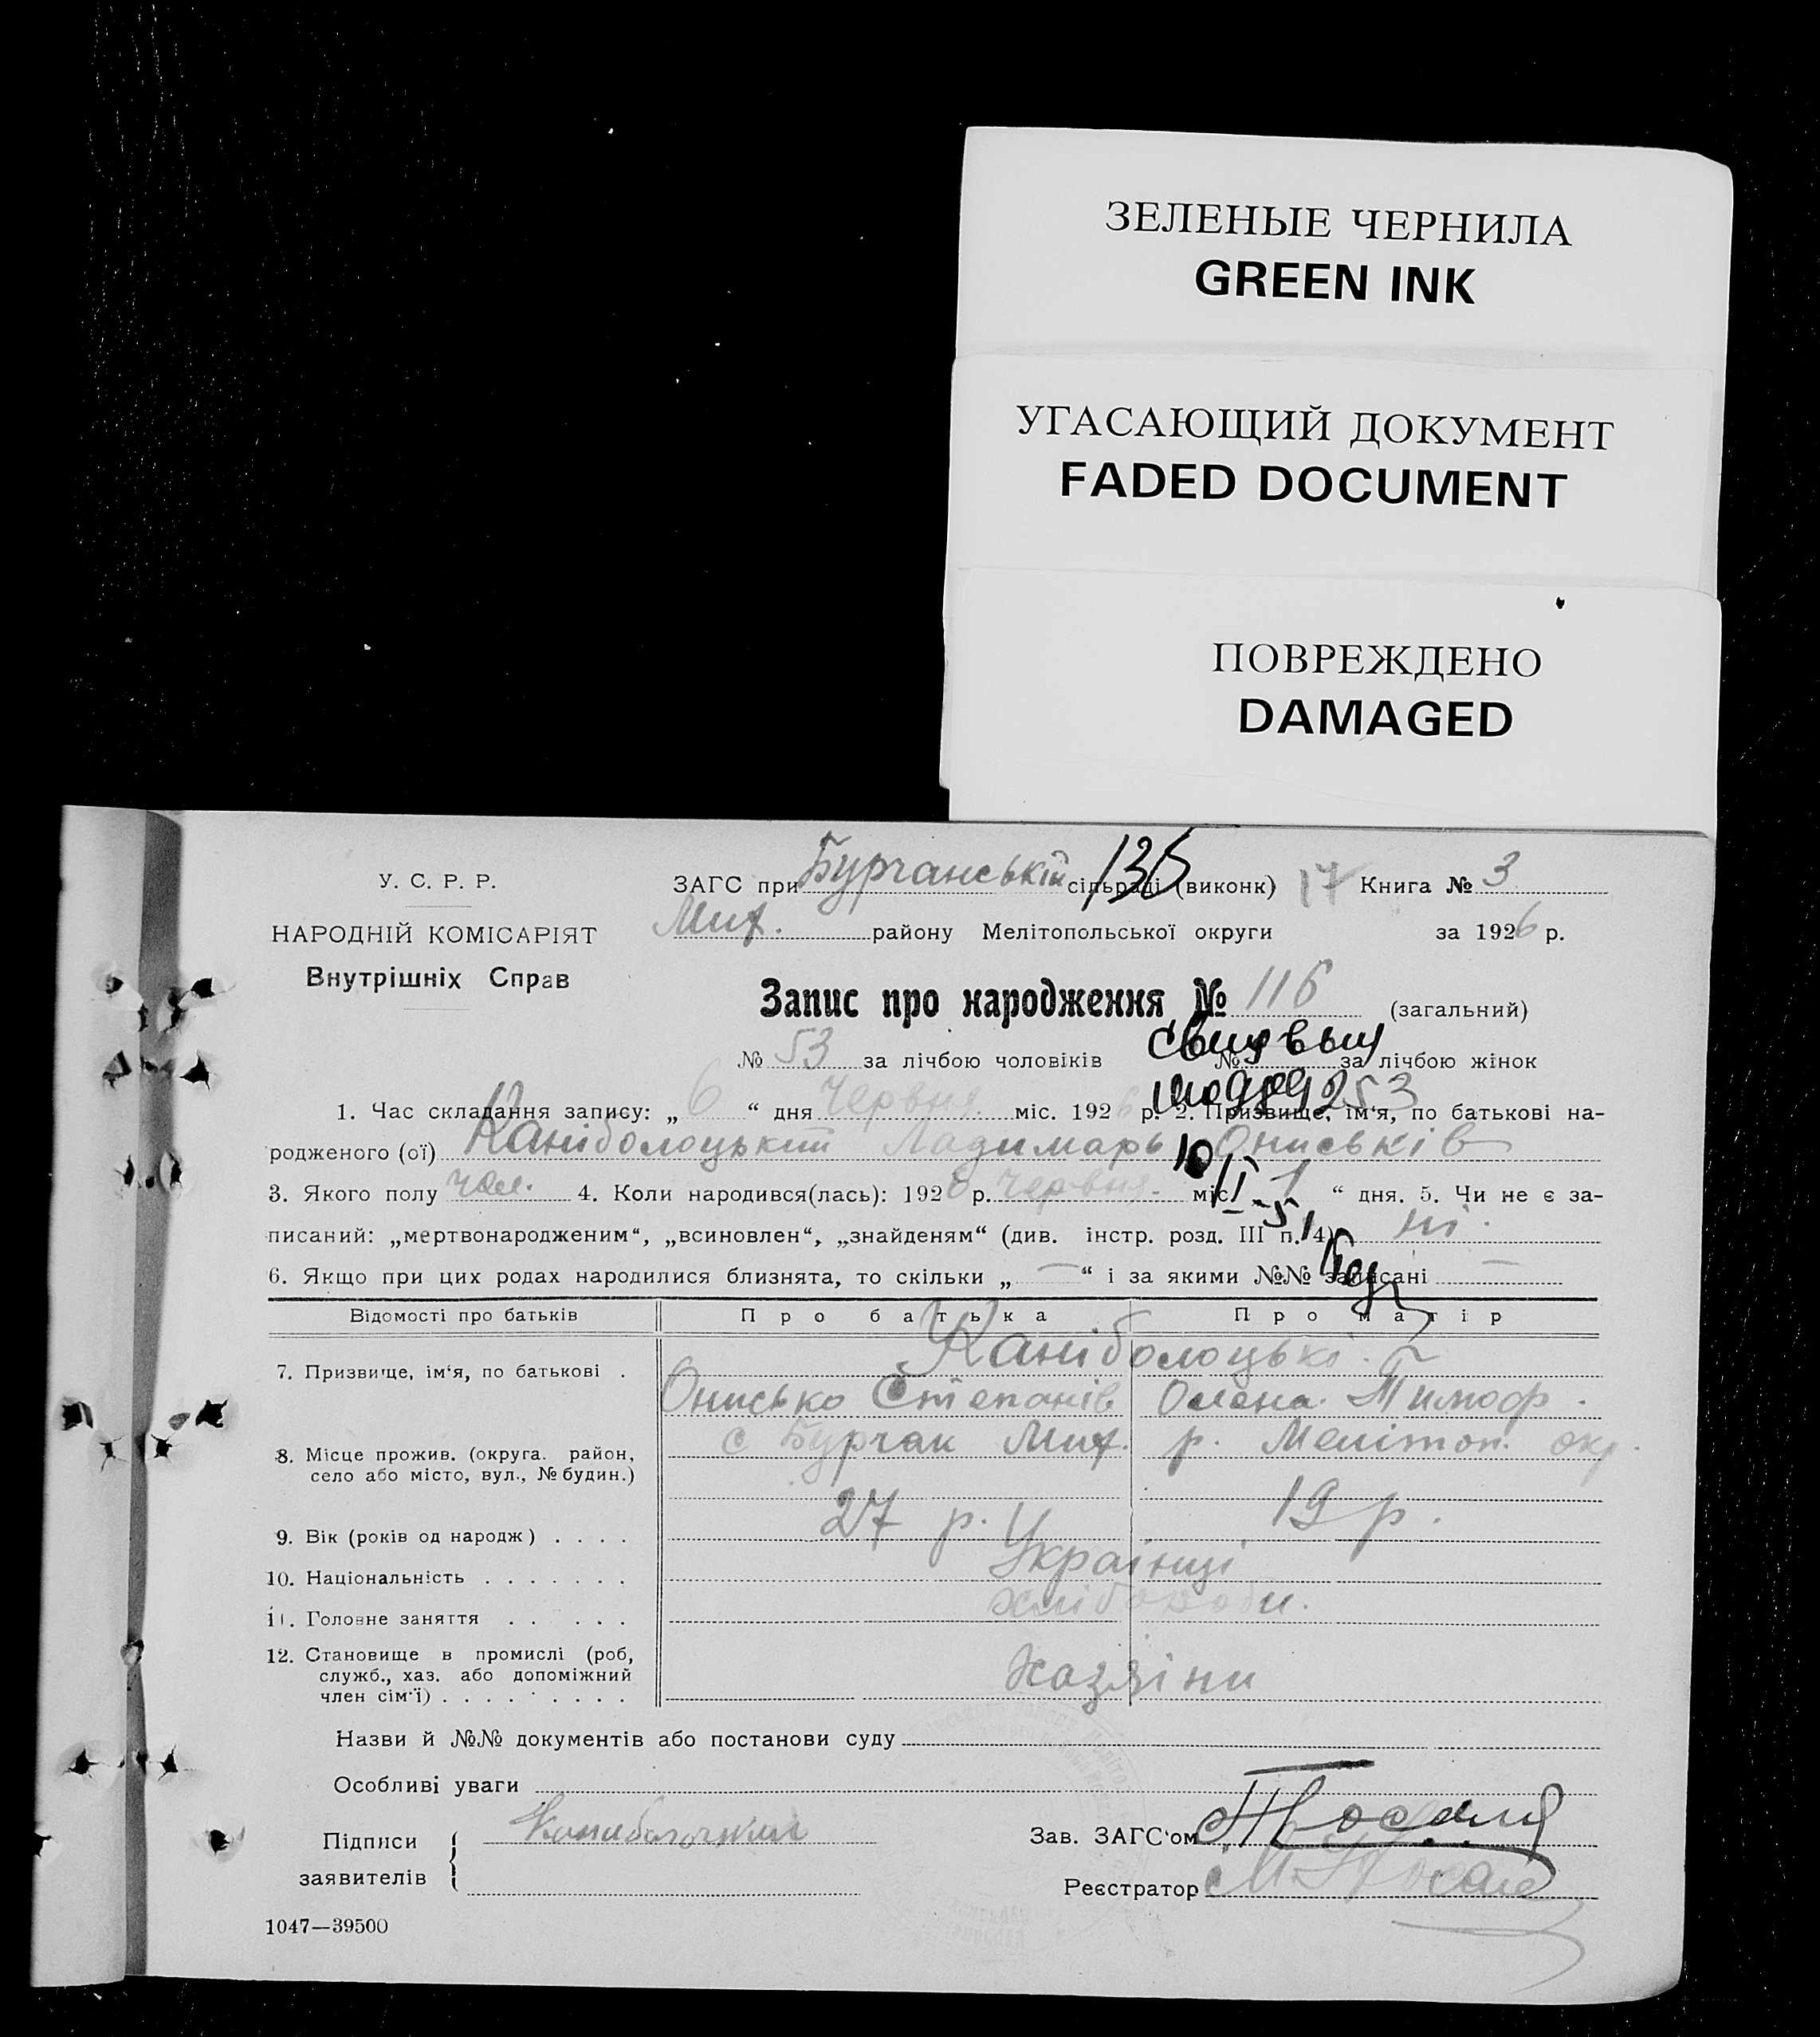 ЗЕЛЕНЫЕ ЧЕРНИЛА
GREEN INK
УГАСАЮЩИЙ ДОКУМЕНТ
FADED DOCUMENT
ПОВРЕЖДЕНО
DAMAGED
У. С. Р. Р.
НАРОДНІЙ КОМІСАРІЯТ
Внутрішніх Справ
ЗАГС при Бурчанській сільраді (виконк) 17 Книга № 3
135
Мих. району Мелітопольської округи за 1926 р.
Запис про народження № 116 (загальний)
№ 53 за лічбою чоловіків № за лічбою жінок
1. Час складання запису: „ 6 “ дня Червня міс. 1926 р. 2. Призвище, ім‘я, по батькові на-
родженого (ої) Каніболоцький Ладимарь Ониськів
3. Якого полу чол. 4. Коли народився(лась): 1926 р. Червня міс. 1 “ дня. 5. Чи не є за-
писаний: „мертвонародженим“, „всиновлен“, „знайденям“ (див. інстр. розд. III п. 14) ні.
6. Якщо при цих родах народилися близнята, то скільки „ — “ і за якими №№ записані —
Відомості про батьків Про батька Про матір
7. Призвище, ім‘я, по батькові . Каніболоцькі.
Онисько Степанів Олена Тимоф.
8. Місце прожив. (округа. район, село або місто, вул., № будин.) с Бурчак Мих. р. Меліton. окр.
9. Вік (років од народж) . . . . 27 р. 19 р.
10. Національність . . . . . . . Українці
11. Головне заняття . . . . . . хлібороби.
12. Становище в промислі (роб, служб., хаз. або допоміжний член сім‘ї) . . . . . . . . . Хазяіни
Назви й №№ документів або постанови суду
Особливі уваги
Підписи заявителів Каниболоцкий
Зав. ЗАГС‘ом
Реєстратор
1047—39500